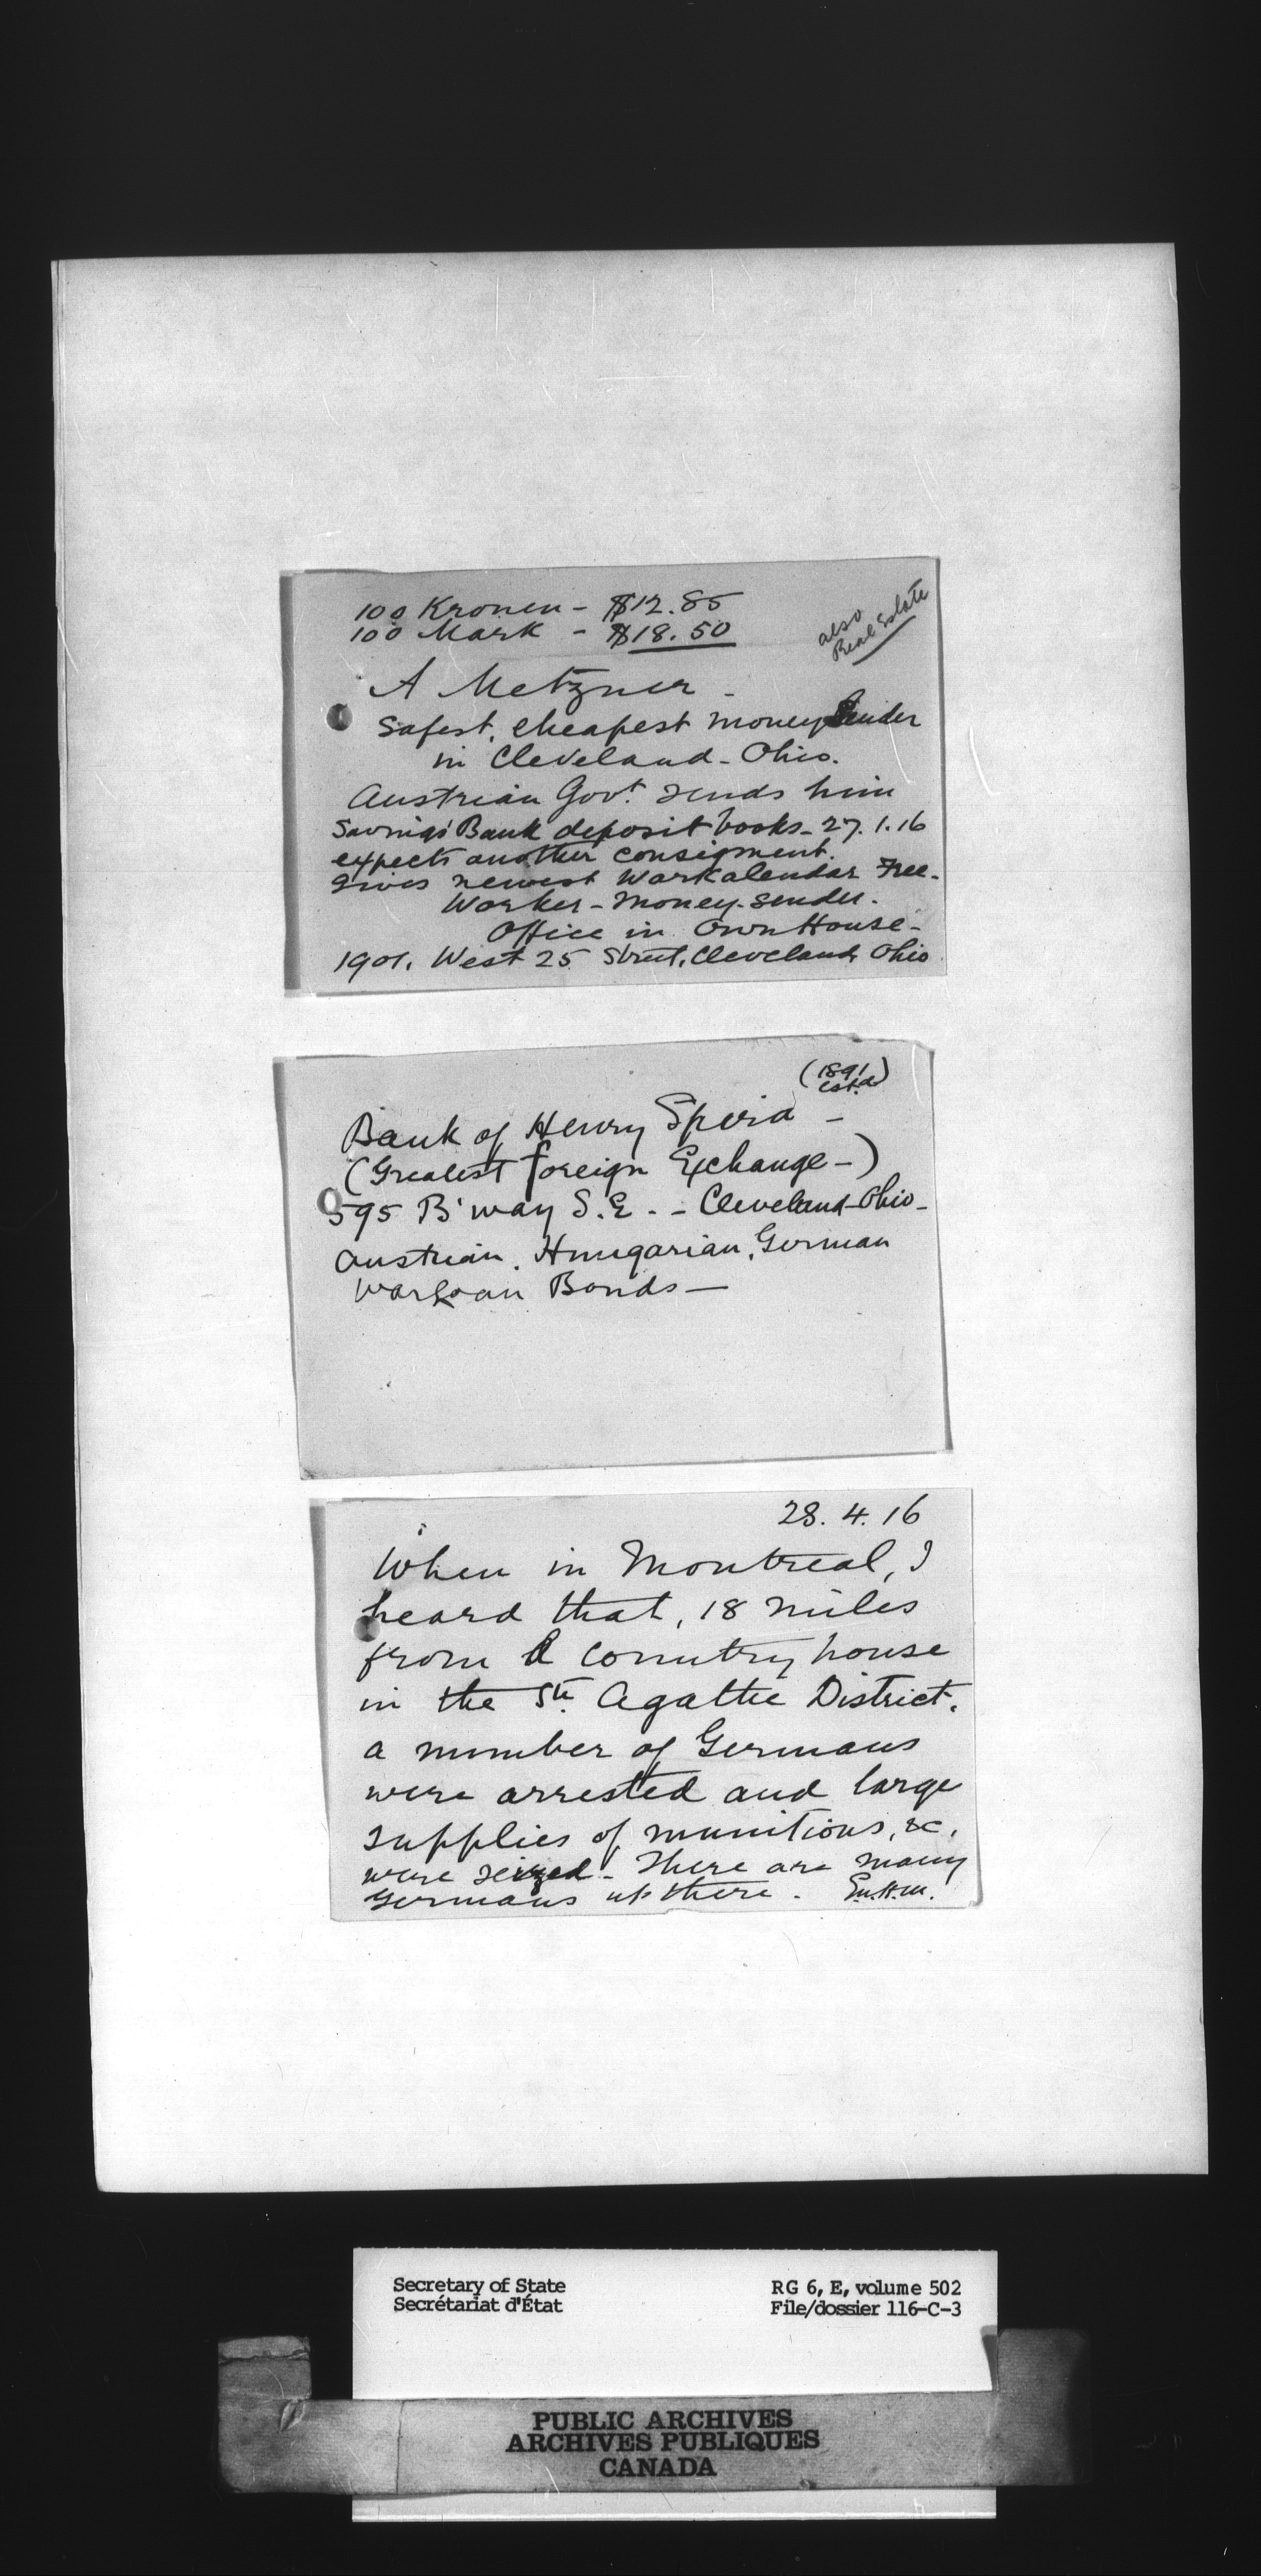 100 Kronen - $12.85
100 Mark - $18.50
also
Real Estate
A Metzner -
Safest, cheapest money Sender
in Cleveland - Ohio.
Austrian Govt. sends him
Savings Bank deposit books - 27.1.16
expects another consignment.
gives newest Warkalendar Free -
Worker - Money - Sender.
Office in Own House -
1901. West 25 Street, Cleveland Ohio
(1891
estd)
Bank of Henry Spira -
(Greatest foreign Exchange -)
595 B'way S.E. - Cleveland - Ohio -
Austrian, Hungarian, German
War Loan Bonds -
28.4.16
When in Montreal, I
heard that, 18 miles
from a country house
in the Ste. Agathe District,
a number of Germans
were arrested and large
supplies of munitions, &c,
were seized - There are many
Germans up there.
Secretary of State
Secrétariat d'État
RG 6, E, volume 502
File/dossier 116-C-3
PUBLIC ARCHIVES
ARCHIVES PUBLIQUES
CANADA